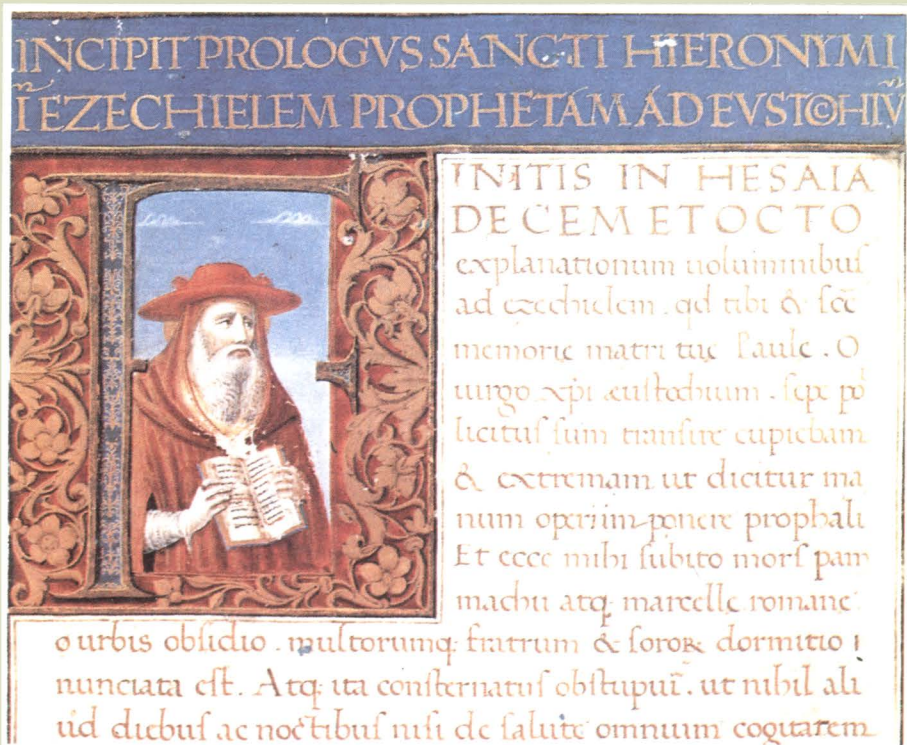 INCIPIT PROLOGVS SANCTI HIERONYMI
I̅ EZECHIELEM PROPHETAM AD EVSTOCHIV̅
FINITIS IN HESAIA
DECEM ET OCTO
explanationum uoluminibus
ad ezechielem . qd tibi & sce̅
memorie matri tue̜ Paule . O
uirgo xp̅i eustochium . sepe po
licitus sum transire cupiebam
& extremam ut dicitur ma
num operi imponere prophali
Et ecce mihi subito mors pam
machii atq; marcelle̜ romane
o urbis obsidio . multorumq; fratrum & soroꝝ dormitio i
nunciata est . Atq; ita consternatus obstupui . ut nihil ali
ud diebus ac noctibus nisi de salute omnium cogitarem